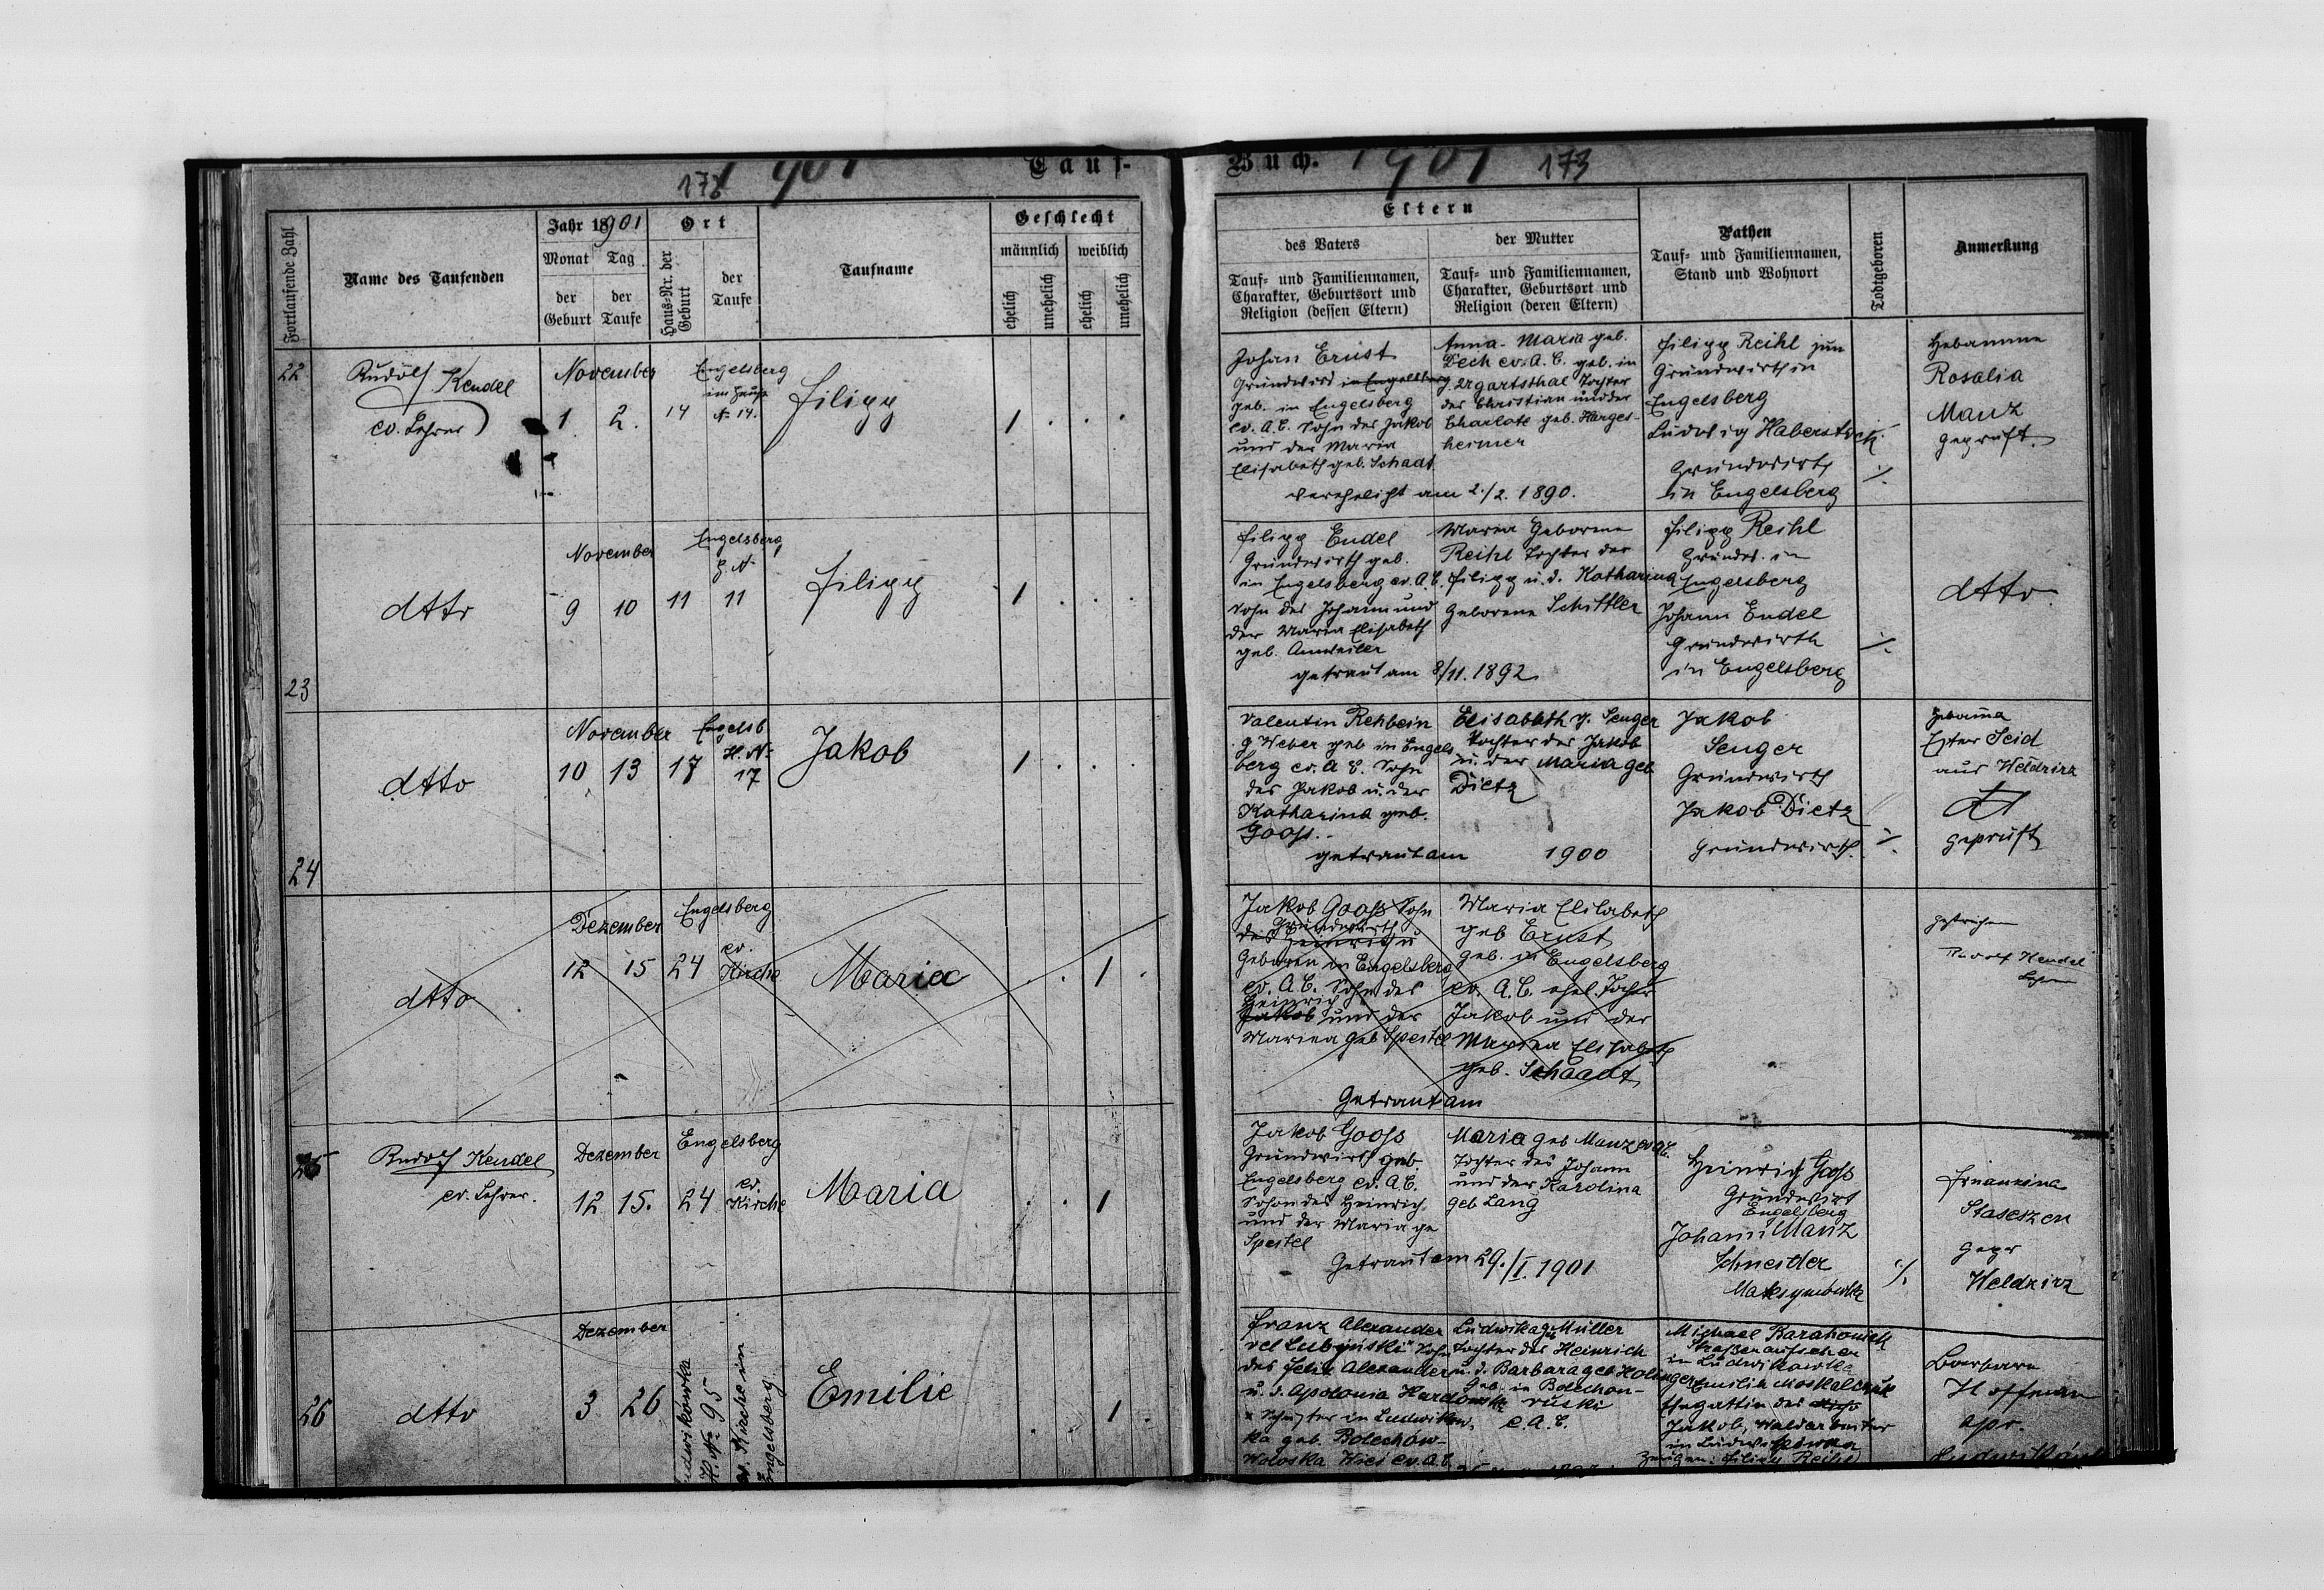 1901 Tauf-
173
Buch. 1901 173
Fortlaufende Zahl
Name des Taufenden
Jahr 18901
Monat Tag
der Geburt
der Taufe
Ort
Haus-Nr. der Geburt
der Taufe
Taufname
Geschlecht
männlich weiblich
ehelich
unehelich
ehelich
unehelich
Eltern
des Vaters
Tauf- und Familiennamen,
Charakter, Geburtsort und
Religion (dessen Eltern)
der Mutter
Tauf- und Familiennamen,
Charakter, Geburtsort und
Religion (deren Eltern)
Pathen
Tauf- und Familiennamen,
Stand und Wohnort
Todtgeboren
Anmerkung
22
Rudolf Kendel
ev. Lehrer
November
1. 2. 14
Engelsberg
im Hause
No 14.
Filipp
1 . . .
Johan Ernst
Grundwird in Engelsberg
geb. in Engelsberg
ev. A. C. Sohn des Jakob
und der Maria
Elisabeth geb. Schadt
Anna-Maria geb.
Dech ev. A. C. geb. in
Ugartsthal Tochter
des Christian und der
Charlote geb. Harges-
heimer
verehelicht am 2./2. 1890.
Filipp Reihl jun
Grundwirth in
Engelsberg
Ludwig Haberstock
Grundwirth
in Engelsberg
./.
Hebamme
Rosalia
Manz
geprüft.
23
dtto
November
9 10 11
Engelsberg
H. No
11
Filipp
1 . . .
Filipp Endel
Grundwirth geb.
in Engelsberg ev. A. C.
Sohn des Johann und
der Maria Elisabeth
geb. Annweiler
Maria Geborene
Reihl Tochter des
Filipp u. d. Katharina
geborene Schittler
getraut am 8/11. 1892
Filipp Reihl
Grundw. in
Engelsberg
Johann Endel
Grundwirth
in Engelsberg
./.
dtto
24
dtto
November
10 13 17
Engelsb
H. No
17
Jakob
1 . . .
Valentin Rehbein
g Weber geb in Engels
berg ev. A C. Sohn
des Jakob u. der
Katharina geb.
Gooss.
Elisabeth g. Senger
Tochter des Jakob
u. der Maria geb
Dietz
getraut am 1900
Jakob
Senger
Grundwirth
Jakob Dietz
Grundwirth.
./.
Hebama
Ester Seid
aus Weldzirz
geprüft
dtto
Dezember
12 15 24
Engelsberg
ev.
Kirche
Maria
. . 1 .
Jakob Gooss Sohn
Grundwirth
des Heinrich u
Geboren in Engelsberg
ev. A. C. Sohn des
Heinrich
Jakob und der
Mariea geb Speitel
Maria Elisabeth
geb Ernst
geb. in Engelsberg
ev. A. C. ehel. Tochter
Jakob und der
Mariea Elisabeth
geb. Schaadt
Getraut am
gestrichen
Rudolf Kendel
Lehrer
25
Rudolf Kendel
ev. Lehrer.
Dezember
12 15. 24
Engelsberg
ev.
Kirche
Maria
. . 1
Jakob Gooss
Grundwirth geb.
Engelsberg ev. A. C.
Sohn des Heinrich
und der Maria ge
Speitel
Maria geb Manz ev A C.
Tochter des Johann
und der Karolina
geb Lang
Getraut am 29./I. 1901
Heinrich Gooss
Grundwirt
Engelsberg
Johann Manz
Schneider
Maksymówka
./.
Staseszen
gepr
Weldzirz
26
dtto
Dezember
3 26
Ludwikówka
H. No 95
ev. Kirche in
Engelsberg.
Emilie
. . 1 .
Franz Alexander
vel Lubyński Sohn
des Felix Alexander
u. d. Apolonia Hardowska
x Schuster in Ludwików-
ka geb. Bolechów-
Woloska Wies ev. A. C.
Ludwika geb Müller
Tochter des Heinrich
u. d. Barbara geb Holinger
Geb. in Bolechow-
ruski
e. A. C.
Michael Barahoniek
Straßenaufseher
in Ludwikówka
Emilia Moskalczuk
Ehegattin des
Jakob, Waldarbeiter
in Ludwikówka
Zeugen: Filipp Reihl
Barbara
Hoffman
apr.
Ludwikówk